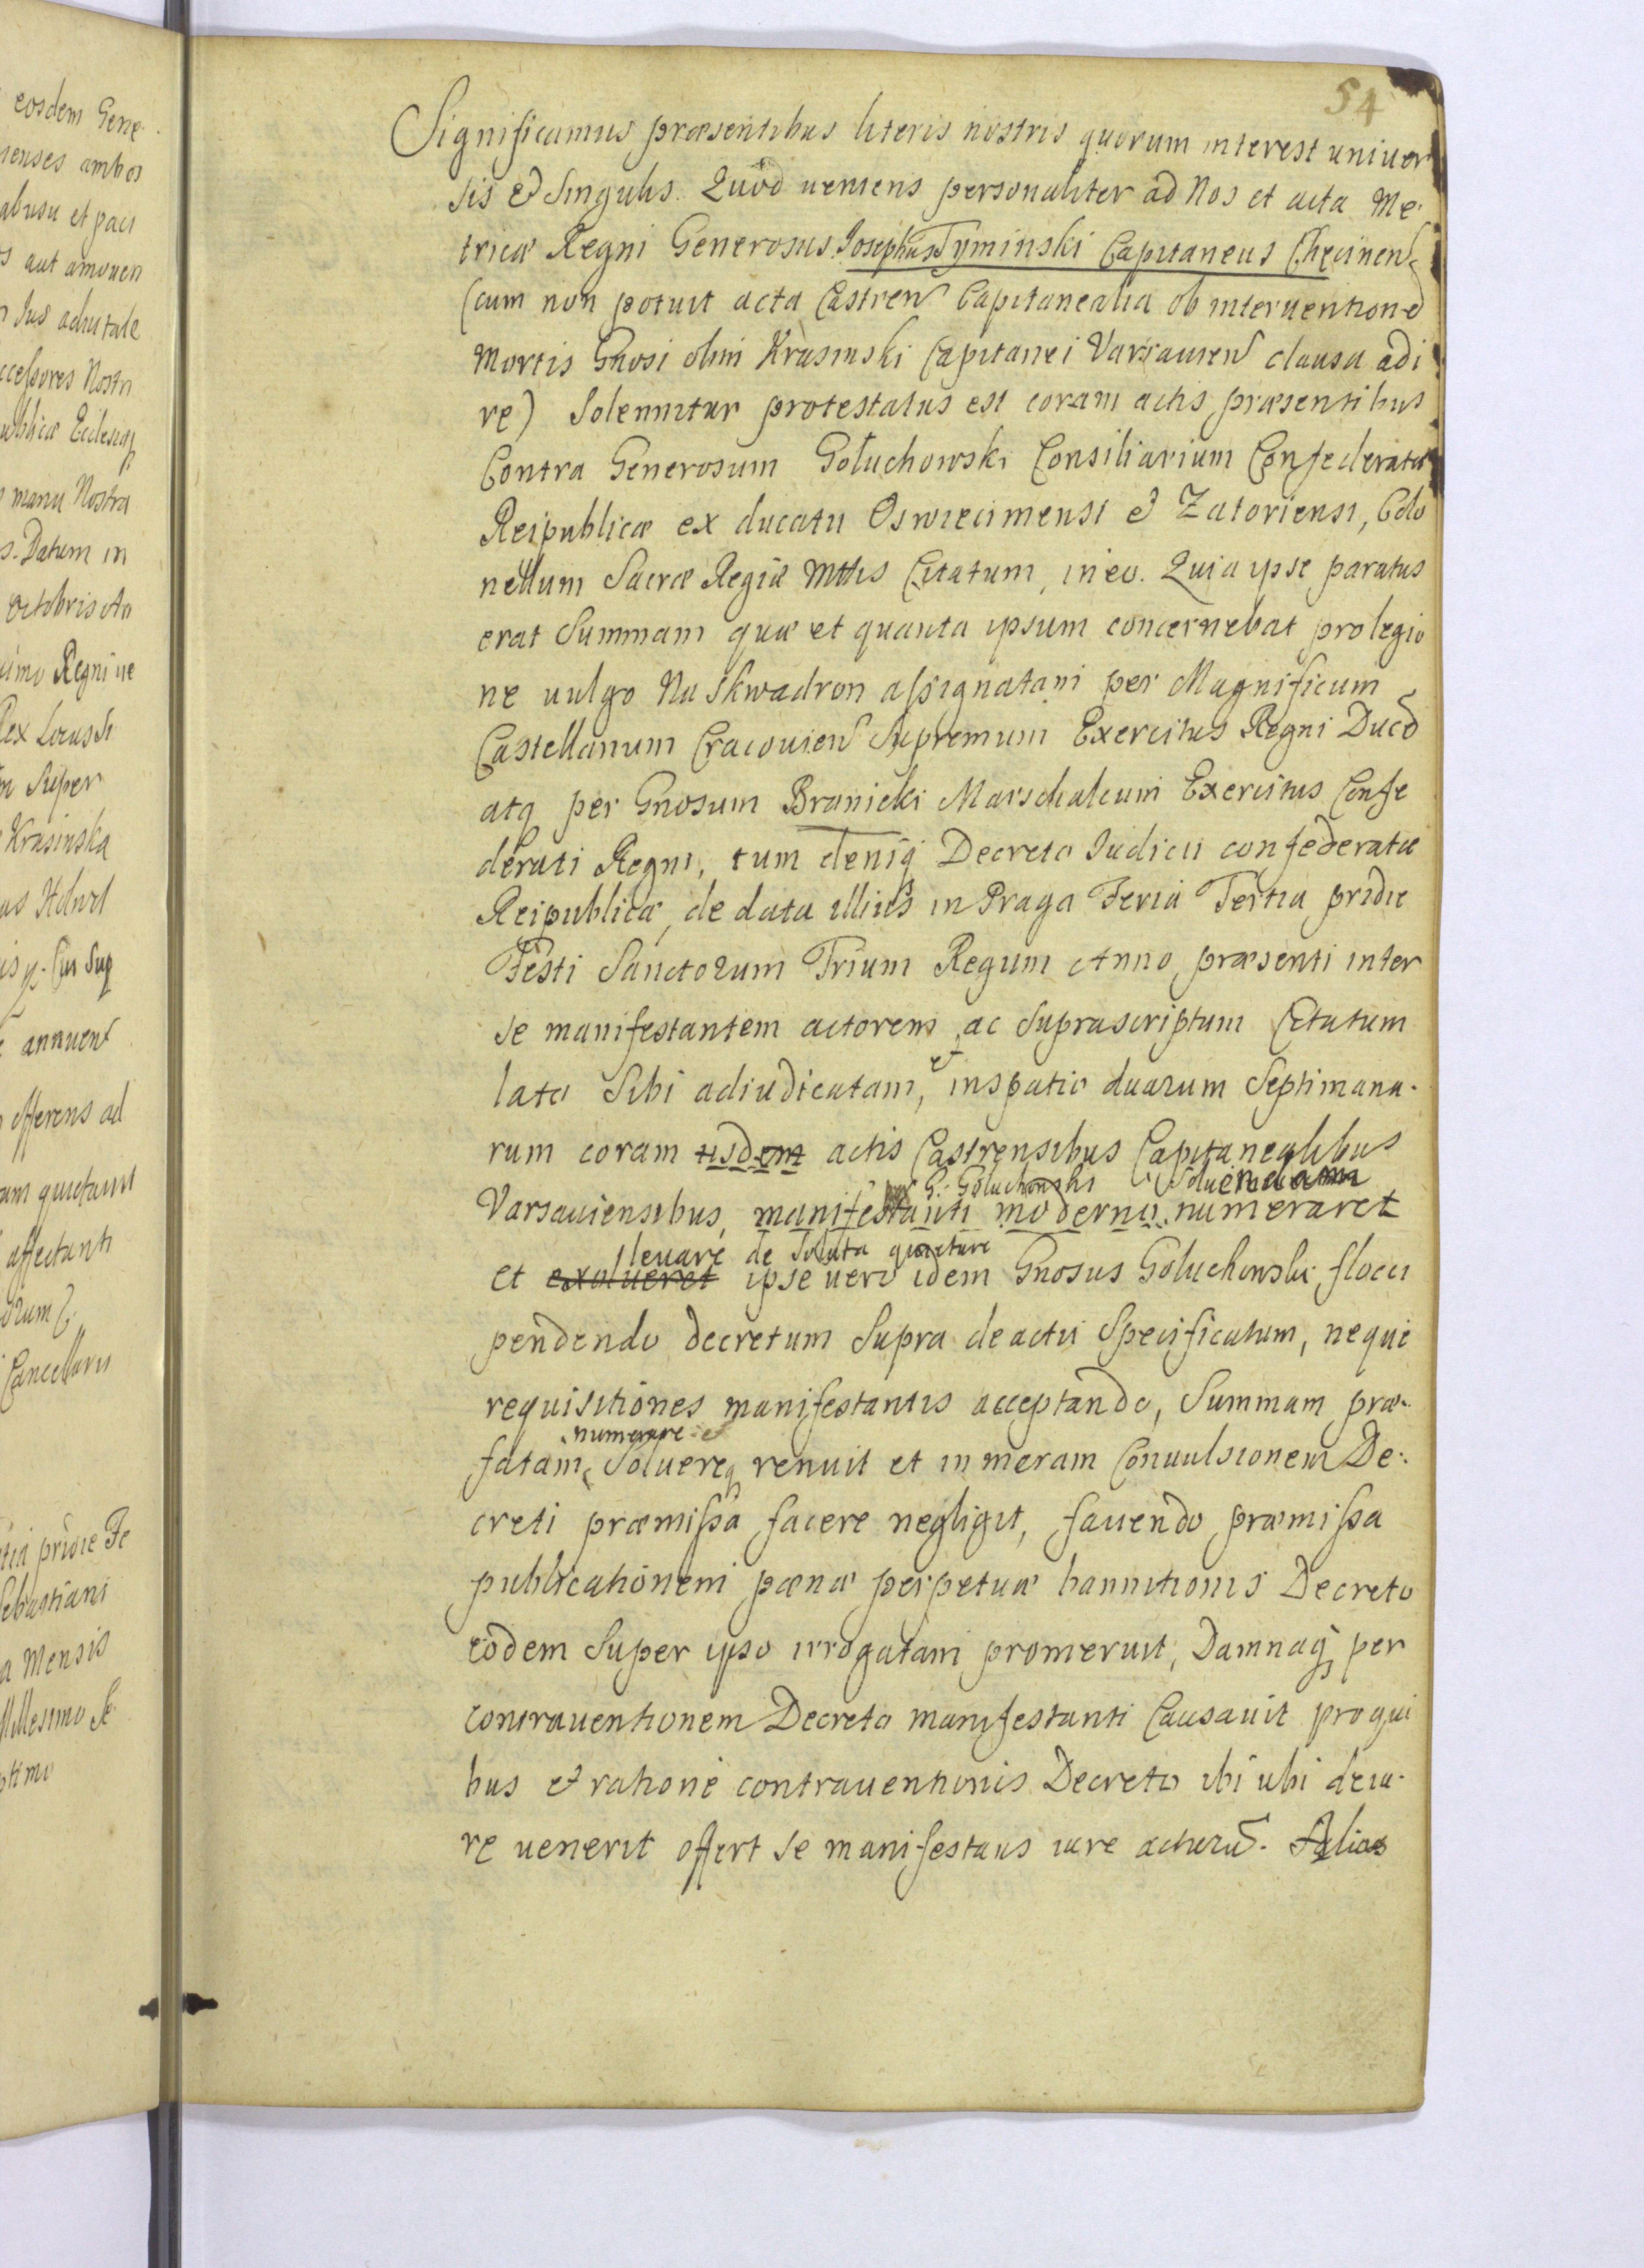 eosdem Gene
enses ambos
abusu et paci
s aut amouen
n Ius aduitale
ccessores Nostri
ublicæ Ecclesiaq
manu Nostra
s. Datum in
octobris An
imo Regni ue
Rex Locus Si
m Super
Krasinska
annuent
offerens ad
am quietauit
affectanti
orum
Cancellarii
tia pridie Fe
Sebastiani
a Mensis
Millesimo Se
ptimo
54
Significamus præsentibus literis nostris quorum interest univer
sis & singulis. Quod ueniens personaliter ad Nos et acta Me-
tricæ Regni Generosus Iosephus Tyminski Capitaneus Chęcinen
(cum non potuit acta Castren Capitanealia ob interuentione
mortis Gnosi olim Krasinski Capitanei Varsauien clausa adi
re) Solenniter protestatus est coram actis præsentibus
Contra Generosum Gołuchowski Consiliarium Confederatæ
Reipublicæ ex ducatu Oswiecimensi & Zatoriensi, Colo
nellum Sacræ Regiæ Mttis Citatum, in eo. Quia ipse paratus
erat Summam quæ et quanta ipsum concernebat pro legio
ne uulgo Na Skwadron assignatam per Magnificum
Castellanum Cracouien Supremum Exercitus Regni Duce
atq per Gnosum Branicki Marschalcum Exercitus Confe
derati Regni, tum deniq Decreto Iudicii confederatæ
Reipublicæ, de data illius in Praga Feria Tertia pridie
Festi Sanctorum Trium Regum Anno præsenti inter
se manifestantem actorem ac Suprascriptum Citatum
lato Sibi adiudicatam, et in spatio duarum Septimana-
rum coram iisdem actis Castrensibus Capitanealibus
G. Goluchowski Soluendam
Varsauiensibus, manifestanti moderno numeraret
leuare de soluta quietare
et exolueret ipse uero idem Gnosus Goluchowski flocci
pendendo decretum Supra de actu Specificatum, neque
requisitiones manifestantis acceptando, Summam præ-
numerare et
fatam Soluereq renuit et in meram Conuulsionem De-
creti præmissa facere negligit, fauendo præmissa
publicationem pœnæ perpetuæ bannitionis Decreto
eodem Super ipso irrogatam promeruit, Damnaq per
contrauentionem Decreto manifestanti Causauit pro qui
bus & ratione contrauentionis Decreto ibi ubi de iu-
re uenerit offert se manifestans iure acturu. Alias